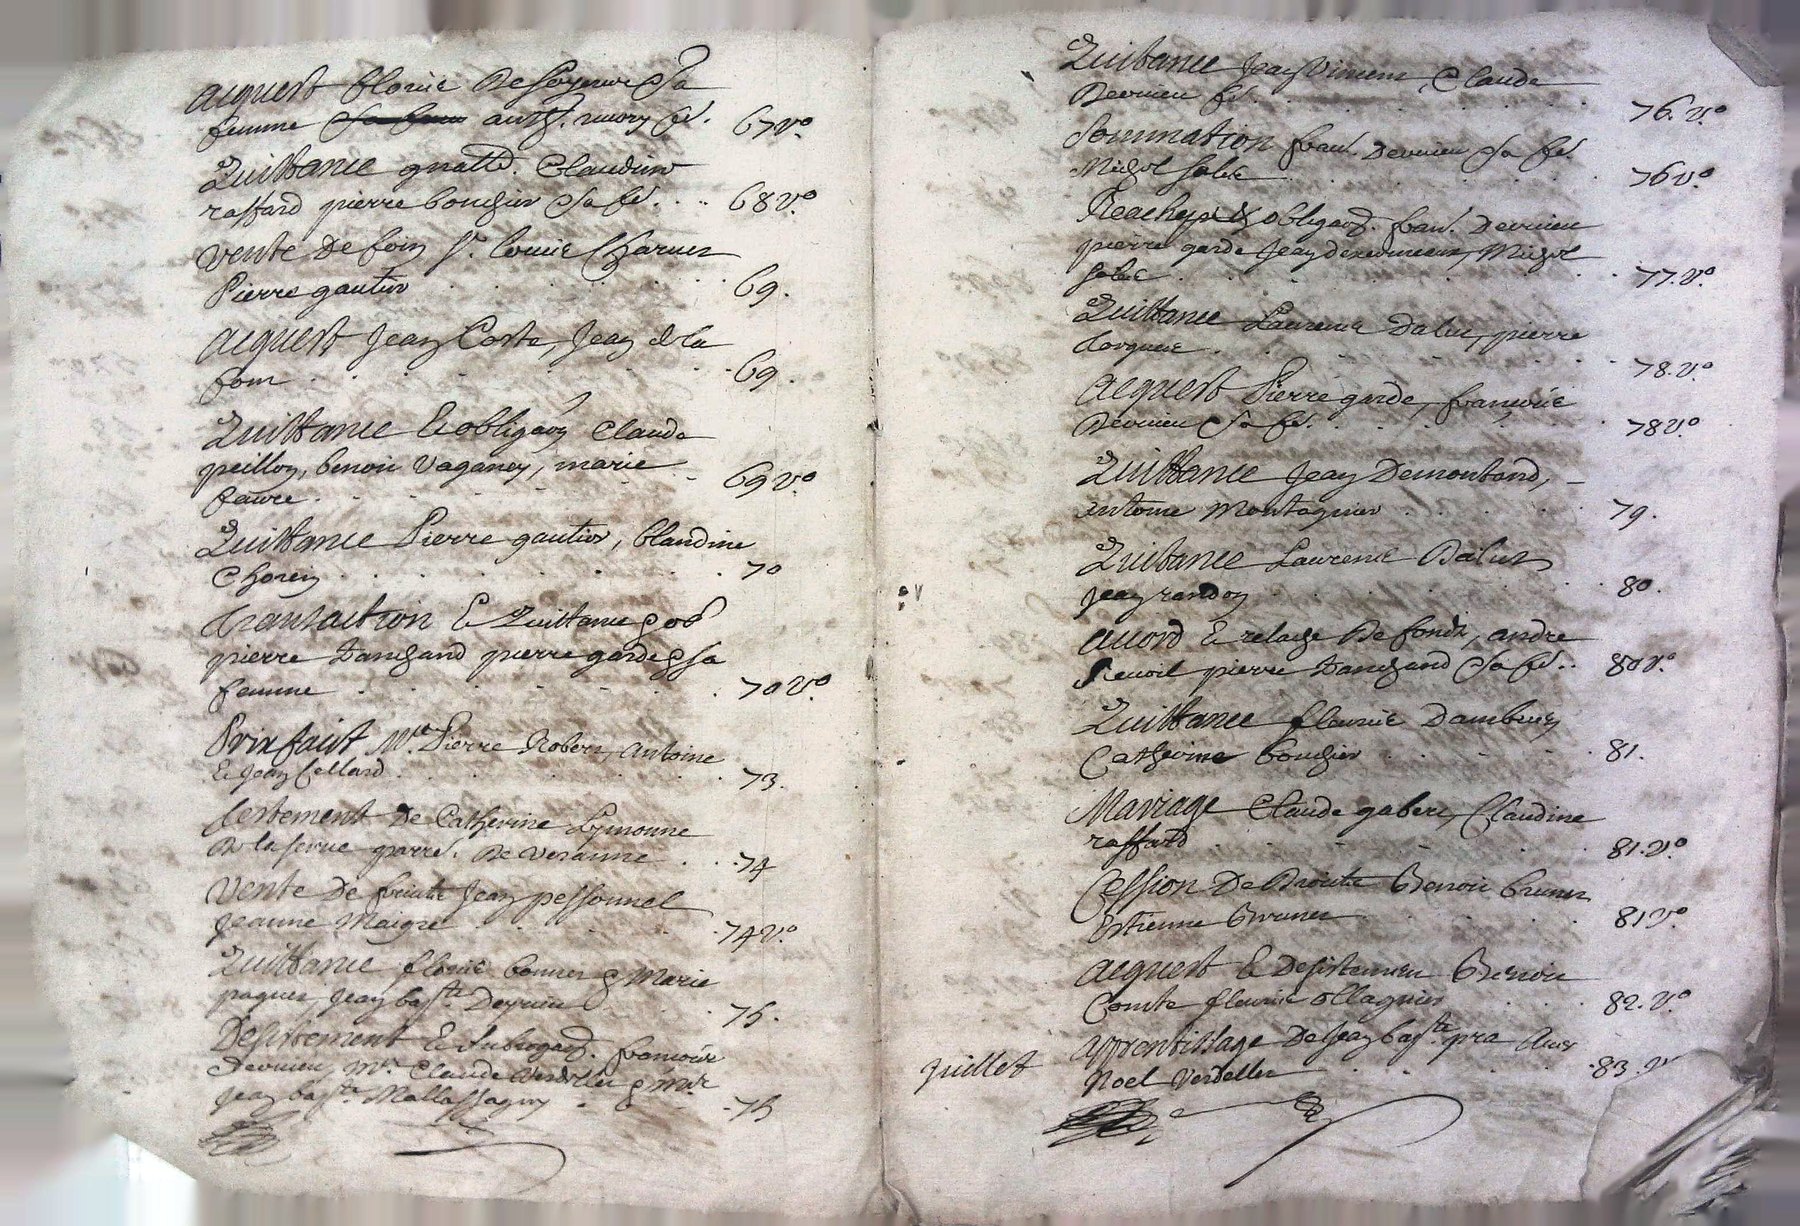 acquest Florie De
femme anth. mory fe. 67 v.o
Quittance gnalle. Claudine
raffard pierre bouchier Sa fe. 68 v.o
vente De foin Sr. Louis Charues
Pierre gautier 69.
acquest Jean Coste, Jean dela
fom 69.
Quittance & obligaon Claude
peillon, benoit vaganey, marie
faure. 69 v.o
Quittance Pierre gautier, blandine
Chorein 70
transaction & Quittance p ob
pierre tanchaud pierre garde p sa
femme 70 v.o
Prixfait Mre Pierre Robert, antoine
& Jean Cellard 73.
testement De Catherine Lymonne
De la parre. De veranne 74
Vente De Jean pessonnel
Jeanne Maigre 74 v.o
Quittance florie bonnet p Marie
paquet, Jean bapte Dervieu 75.
Desistement & Subrogaon. francoise
Dervieu, Mre Claude Verdellet p mre
Jean bapte Mallassagny 75
Quittance Jean Claude
Dervieu fe. 76. v.o
Sommation fran. Dervieu Sa fe.
Michel 76 v.o
& obligaon. fran. Dervieu
pierre garde Jean Michel
77. v.o
Quittance Laurence Dalur, pierre
78. v.o
acquest Pierre garde, francoise
Dervieu Sa fe. 78 v.o
Quittance Jean Demontrond,
antoine Montagnier 79.
Quittance Laurence Dalur
Jean randon 80.
accord & relache De fonds, andre
pierre tanchaud Sa fe. 80 v.o
Quittance fleurie Dambuy
Catherine bouchier 81.
Mariage Claude gabert, Claudine
raffard 81. v.o
Cession De Droits Benoit brunet
Estienne brunet 81 v.o
acquest & Desistement Benoit
Comte fleurie ollagnier 82. v.o
Juillet apprentissage De Jean bapte. pra
Noel Verdellet 83. v